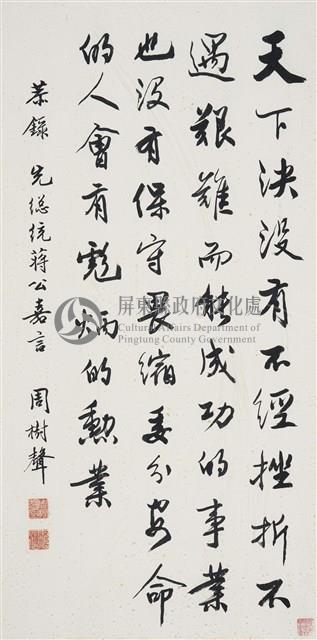 天下決沒有不經挫折不
遇艱難而能成功的事業
也沒有保守畏縮委分安命
的人會有彪炳的勳業
恭錄 先總統蔣公嘉言 周樹聲
屏東縣政府文化處
Cultural Affairs Department of
Pingtung County Government